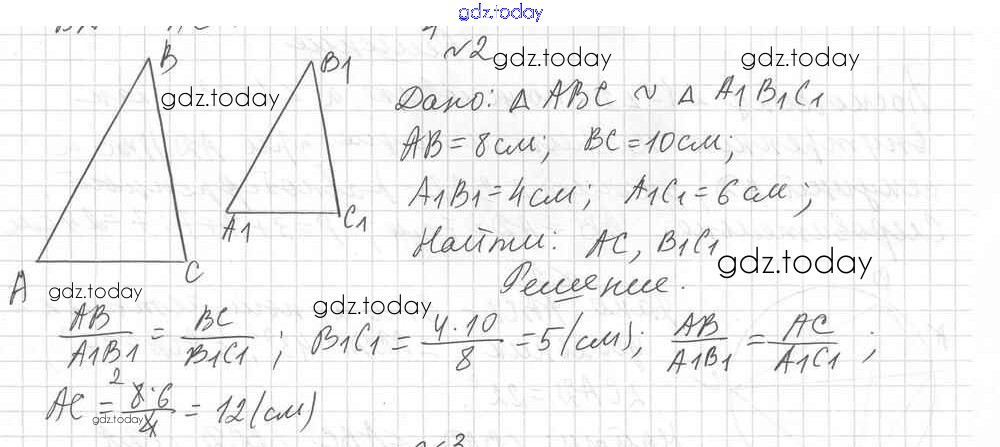 gdz.today
№2
B B1 gdz.today gdz.today
gdz.today Дано: △ ABC ~ △ A1B1C1
AB = 8см; BC = 10см;
A1B1 = 4см; A1C1 = 6см;
A1 C1
Найти: AC, B1C1
A C gdz.today
Решение.
gdz.today gdz.today
AB/A1B1 = BC/B1C1; B1C1 = 4·10/8 = 5(см); AB/A1B1 = AC/A1C1;
AC = 8·6/4 = 12(см)
2
gdz.today
№3